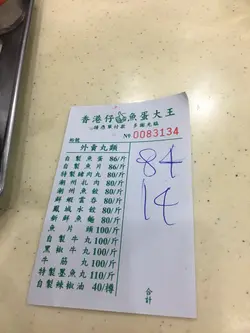 香港仔魚蛋大王
請憑單付款 多謝光臨
No 0083134
外賣丸類
自製魚蛋 86/斤
自製魚片 86/斤
特製豬肉丸 80/斤
潮州札肉 80/斤
潮州水餃 80/斤
鮮蝦雲吞 80/斤
鳳城水餃 80/斤
新鮮魚麵 80/斤
魚片頭 100/斤
自製牛丸 100/斤
黑椒牛丸 100/斤
牛筋丸 100/斤
特製墨魚丸 110/斤
自製辣椒油 40/樽
84
合計